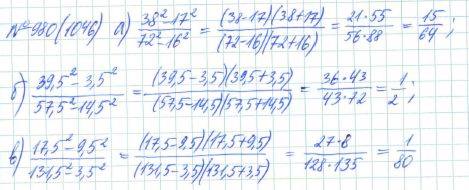 №980(1046) а) \frac{38^2-17^2}{72^2-16^2} = \frac{(38-17)(38+17)}{(72-16)(72+16)} = \frac{21·55}{56·88} = \frac{15}{64};
б) \frac{39,5^2-3,5^2}{57,5^2-14,5^2} = \frac{(39,5-3,5)(39,5+3,5)}{(57,5-14,5)(57,5+14,5)} = \frac{36·43}{43·12} = \frac{1}{2};
в) \frac{17,5^2-9,5^2}{131,5^2-3,5^2} = \frac{(17,5-9,5)(17,5+9,5)}{(131,5-3,5)(131,5+3,5)} = \frac{27·8}{128·135} = \frac{1}{80}